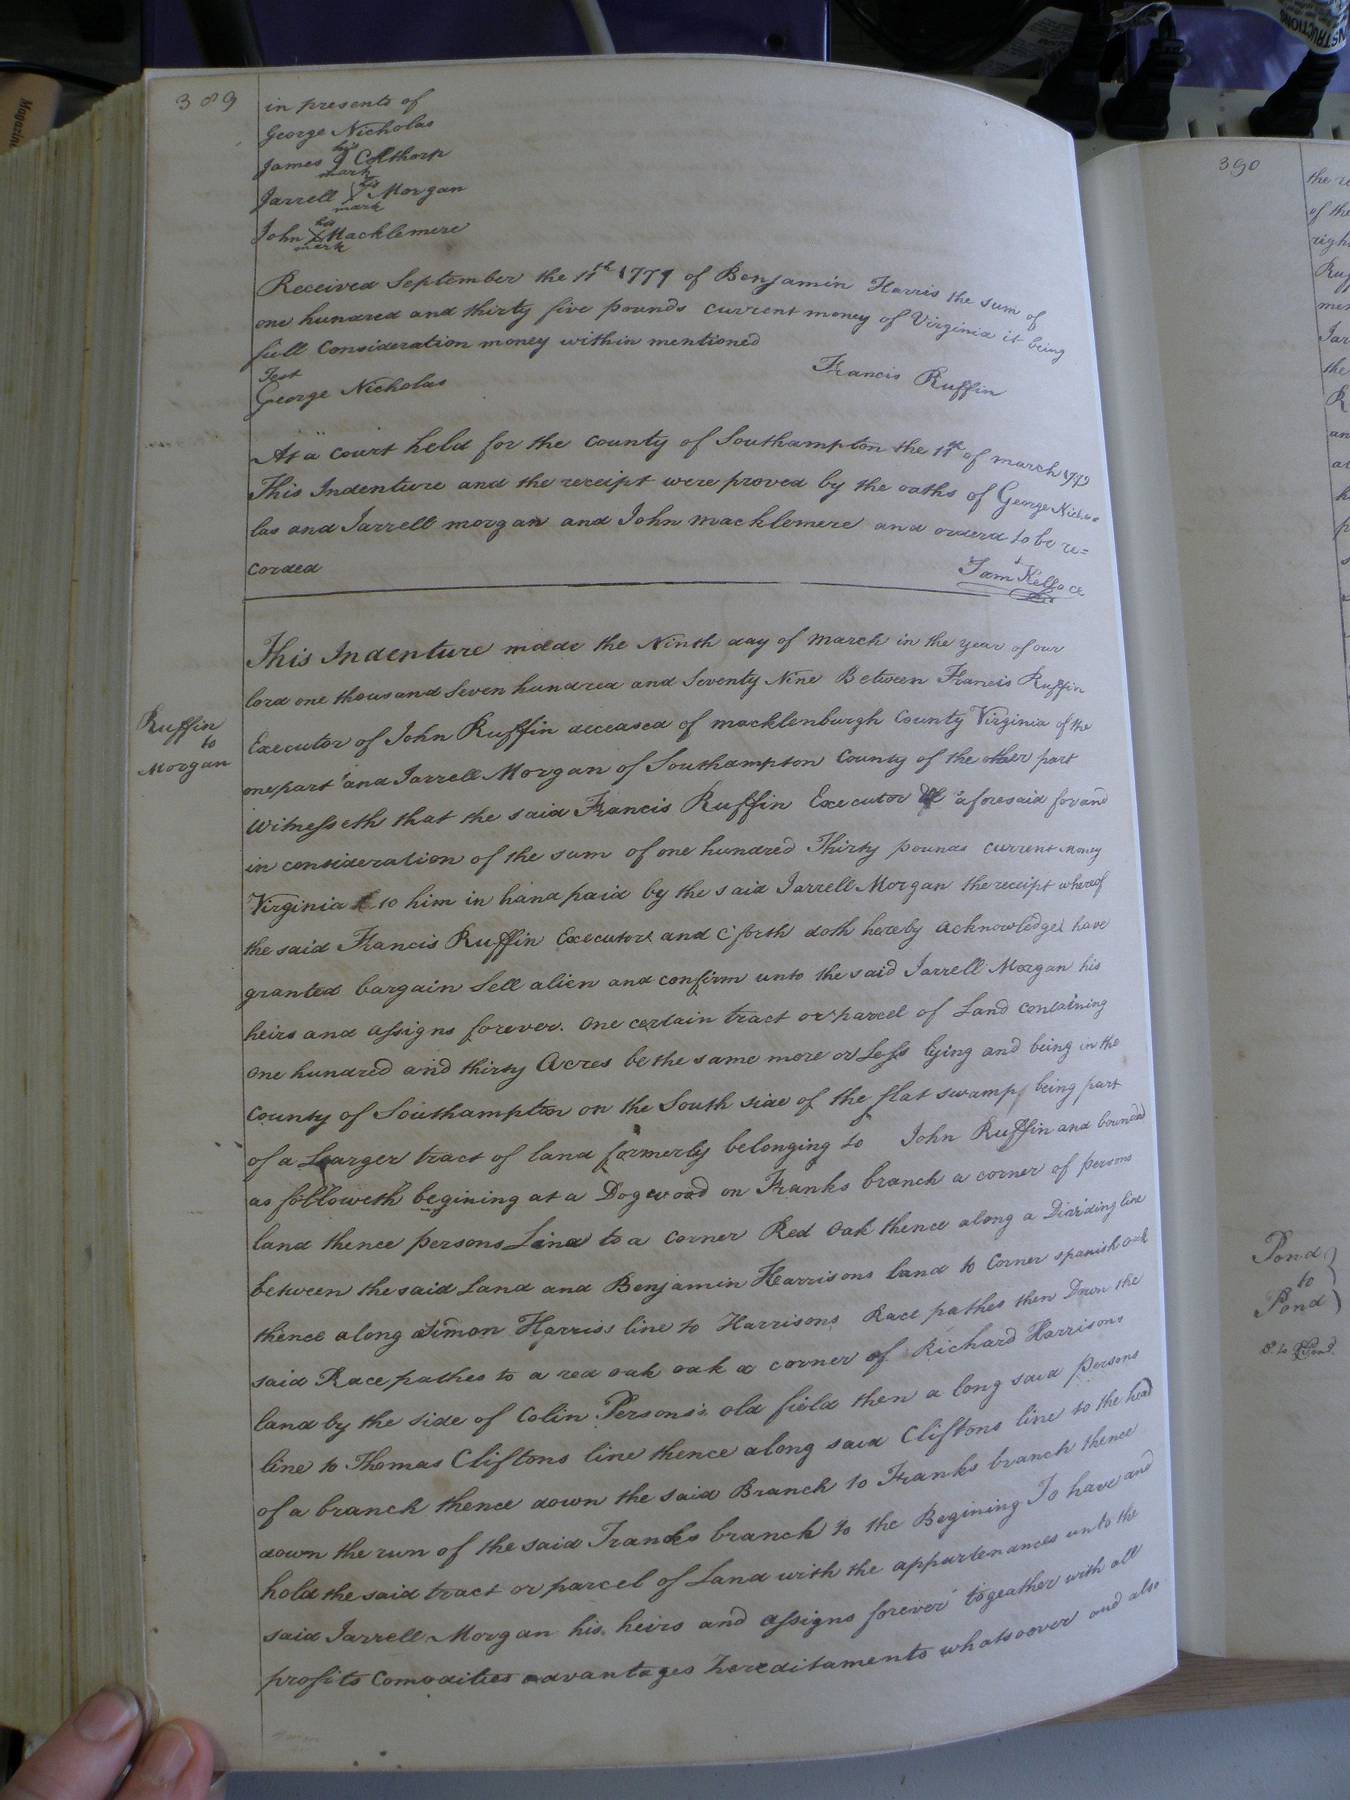 389
in presents of
George Nicholas
his
James J Calthorp
mark
his
Jarrell X Morgan
mark
his
John X Macklemere
mark
Received September the 11th 1779 of Benjamin Harris the sum of
one hundred and thirty five pounds current money of Virginia it being
full Consideration money within mentioned
Francis Ruffin
Test
George Nicholas
At a court held for the county of Southampton the 11th of march 1779
This Indenture and the receipt were proved by the oaths of George Nicho
las and Jarrell morgan and John macklemere and orderd to be re=
corded
Sam Kello CC
Ruffin
to
Morgan
This Indenture made the Ninth day of March in the year of our
lord one thousand Seven hundred and Seventy Nine Between Francis Ruffin
Executor of John Ruffin deceased of macklenburgh County Virginia of the
one part and Jarrell Morgan of Southampton County of the other part
Witnesseth that the said Francis Ruffin Executor aforesaid for and
in consideration of the sum of one hundred Thirty pounds current money
Virginia to him in hand paid by the said Jarrell Morgan the receipt whereof
the said Francis Ruffin Executor and C forth doth hereby acknowledge have
granted bargain Sell alien and confirm unto the said Jarrell Morgan his
heirs and assigns forever. One certain tract or parcel of Land containing
One hundred and thirty Acres be the same more or Less lying and being in the
County of Southampton on the South side of the flat swamp being part
of a Larger tract of land formerly belonging to John Ruffin and bounded
as followeth begining at a Dogwood on Franks branch a corner of persons
land thence persons Land to a corner Red Oak thence along a Dividing line
between the said Land and Benjamin Harrisons land to Corner spanish oak
thence along Simon Harriss line to Harrisons Race pathes then Down the
said Race pathes to a red oak oak a corner of Richard Harrisons
land by the side of Colin Persons's old field then a long said persons
line to Thomas Cliftons line thence along said Cliftons line to the head
of a branch thence down the said Branch to Franks branch thence
down the run of the said Franks branch to the Begining To have and
hold the said tract or parcel of Land with the appurtenances unto the
said Jarrell Morgan his heirs and assigns forever togeather with all
profits Comodities advantages hereditaments whatsoover and also
390
the
of the
righ
Ruf
men
Jar
the
R
an
at
Pond
to
Pond